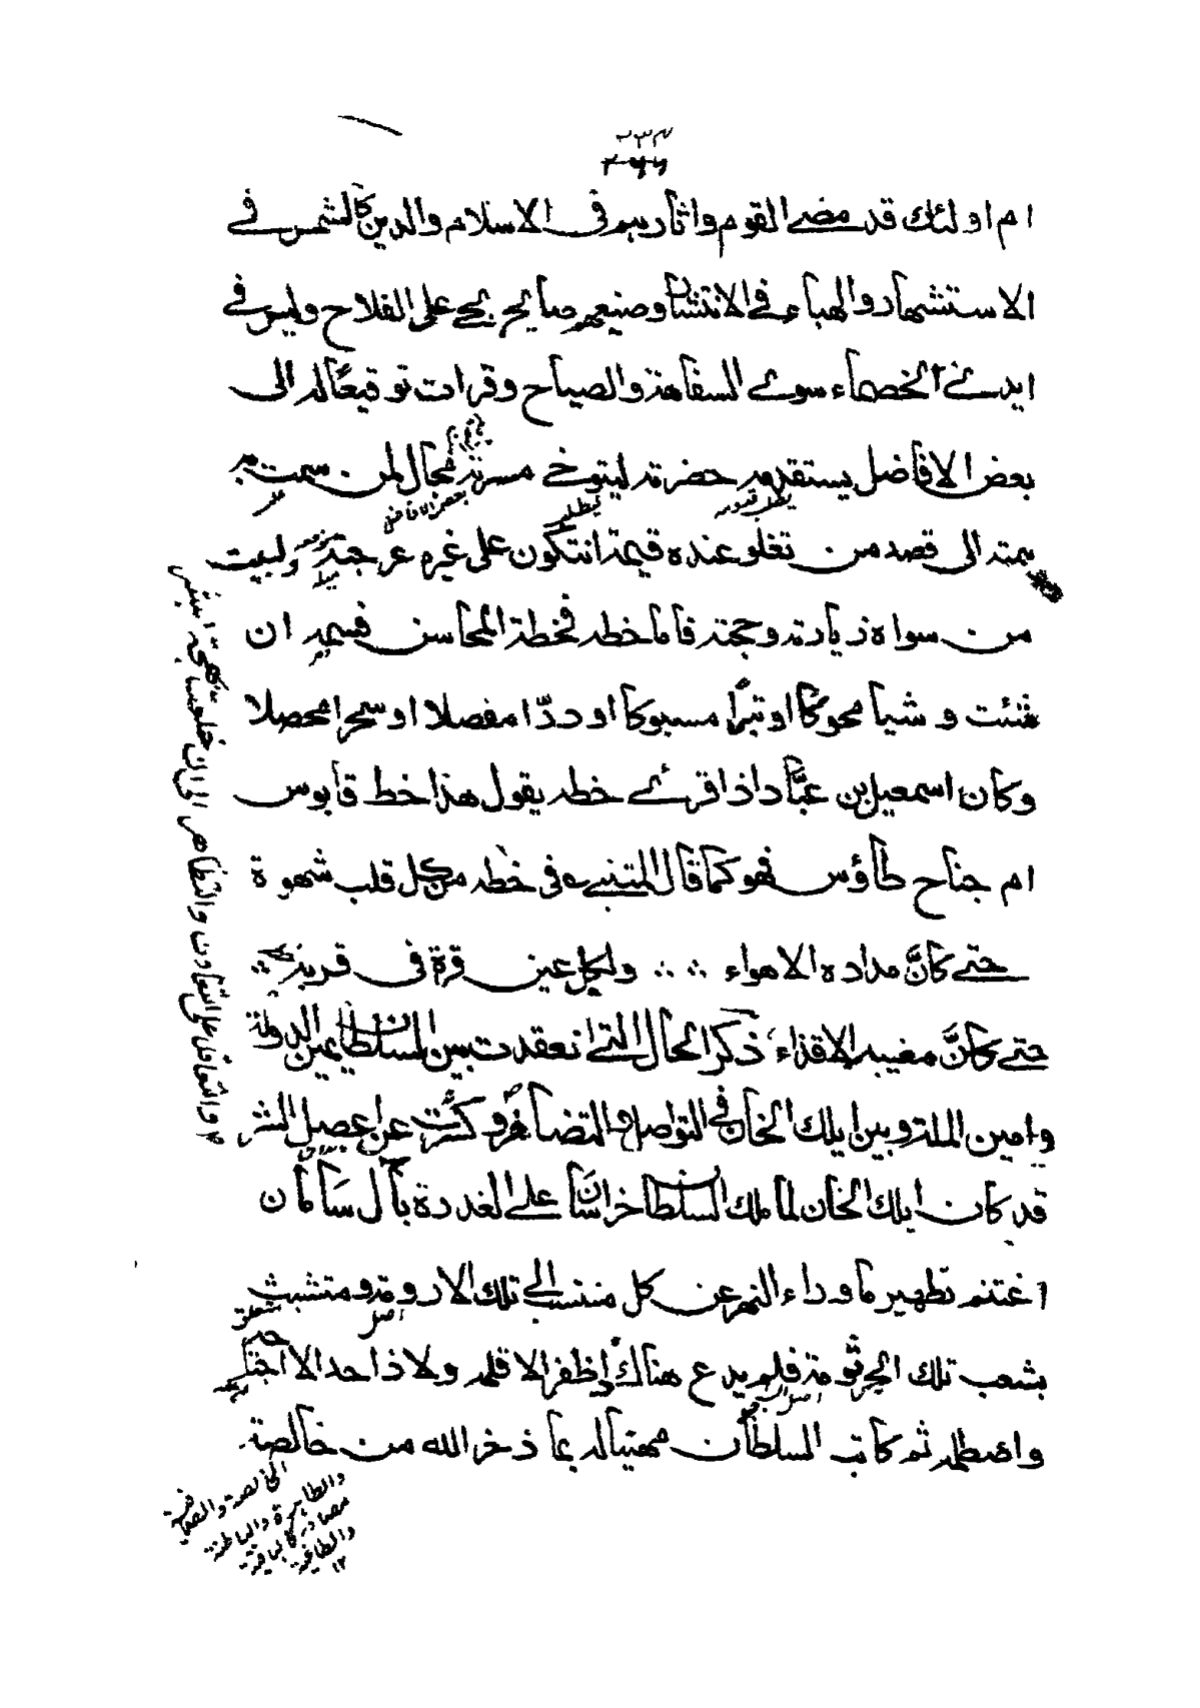 ٢٣٤
ام اولئك قد مضى القوم واثارهم فى الاسلام والدين كالشمس في
الاستشهار والهباء في الانتشار وصنيعهم صايح بحي على الفلاح وليس في
ايدي الخصماء سوى السفاهة والصياح وقرات توقيعا له الى
بعض الافاضل يستقدمه حضرته ليتوخى مسرته محال لمن سمت به
همته الى قصد من تغلو عنده قيمته ان تكون على غيره عرجته ولبيت
من سواه زيارته وحجته فاما خطه فخطة المحاسن فسمه ان
شئت وشيا محوكا او تبرا مسبوكا او درّا مفصلا او سحرا محصلا
وكان اسمعيل بن عبّاد اذا قرئ خطه يقول هذا خط قابوس
ام جناح طاؤس فهو كما قال المتنبي فى خطه من كل قلب شهوة
حتى كانّ مداده الاهواء ∴ ∴ ولكل عين قرة فى قربه
حتى كانّ مغيبه الاقذاء ذكر الحال التي انعقدت بين السلطان يمين الدولة
وامين الملة وبين ايلك الخان في التواصل والتضافر وكشرت عن اعصل الشر
قد كان ايلك الخان لما ملك السلطان خراسان على الغدرة بآل سامان
اغتنم تطهير ماوراء النهر عن كل منتسب الى تلك الارومة ومتشبث
بشعب تلك الجرثومة فلم يدع هناك ذا ظفر الا قلمه ولا ذا حد الا اجتث
واصطلمه ثم كاتب السلطان مهنيا له بما ذخر الله من خالصة
يطلب قدومه
ليطلب
بعض الافاضل
متعلق
اصل
الخالصة والصافية
والظاهرة والباطنة
مصادر كالباقية
والطاغية
١٢